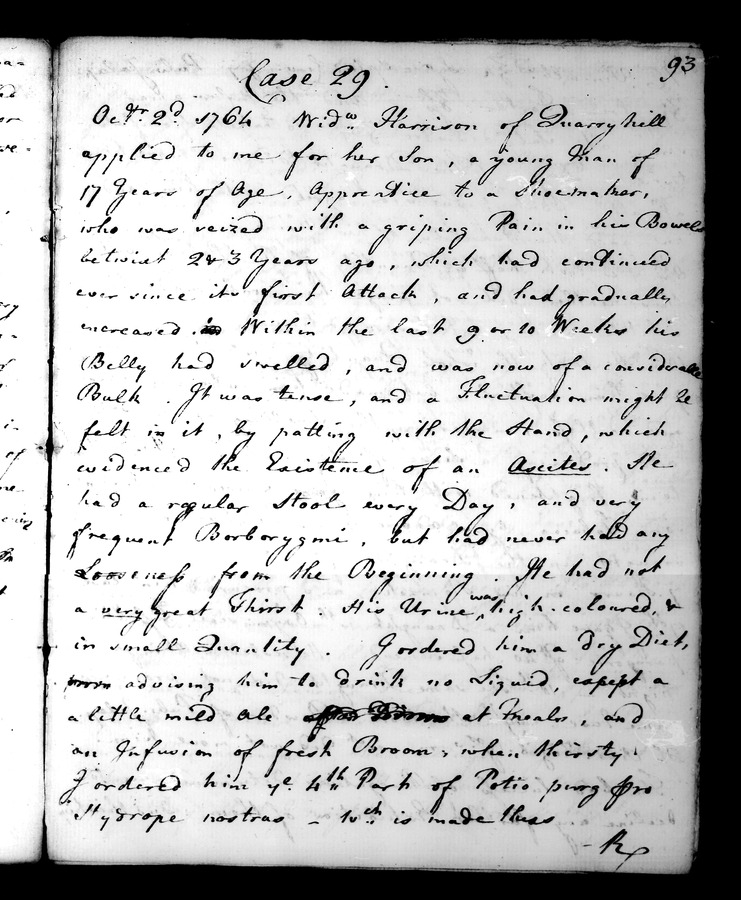 93
Case 29.
Octr. 2d. 1764 Widw. Harrison of Quarryhill
applied to me for her Son, a young Man of
17 Years of Age, Apprentice to a Shoemaker,
who was seized with a griping Pain in his Bowels
betwixt 2 & 3 Years ago, which had continued
ever since its first Attack, and had gradually
encreased. Within the last 9 or 10 Weeks his
Belly had swelled, and was now of a considerable
Bulk. It was tense, and a Fluctuation might be
felt in it, by patting with the Hand, which
evidenced the Existence of an Ascites. He
had a regular Stool every Day, and very
frequent Borborygmi, but had never had any
Looseness from the Beginning. He had not
a very great Thirst. His Urine was high-coloured, &
in small Quantity. I ordered him a dry Diet,
advising him to drink no Liquid, except a
a little mild Ale at Meals, and
an Infusion of fresh Broom, when thirsty.
I ordered him ye. 4th. Part of Potio purg pro
Hydrope nostras - wch. is made thus.
- Rx